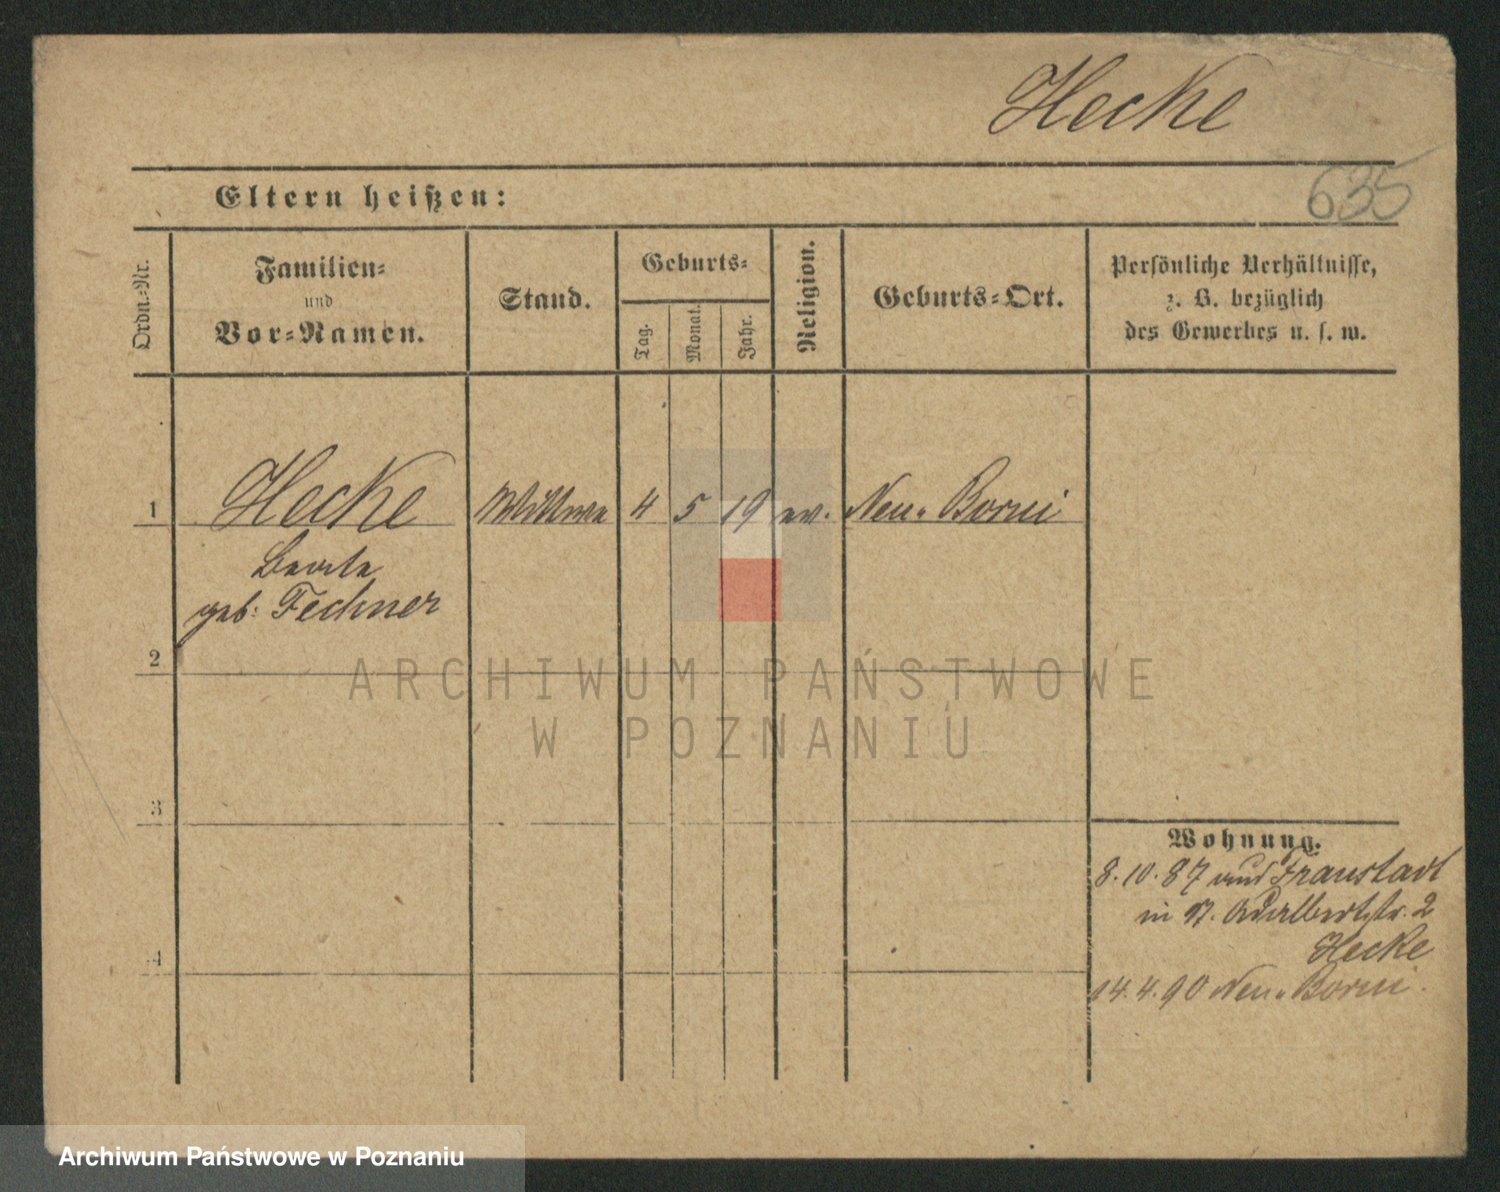 Hecke
635
Eltern heißen:
Ordn.-Nr.
Familien-
und
Vor-Namen.
Stand.
Geburts-
Tag.
Monat.
Jahr.
Religion.
Geburts-Ort.
Persönliche Verhältnisse,
z. B. bezüglich
des Gewerbes u. s. w.
1 Hecke Wittwe 4 5 19 ev. Neu-Borui
Beate
geb: Fechner
2
3
4
Wohnung.
8.10.87 aus Fraustadt
in Adalbertstr. 2
Hecke
14.4.90 Neu-Borui.
ARCHIWUM PAŃSTWOWE
W POZNANIU
Archiwum Państwowe w Poznaniu